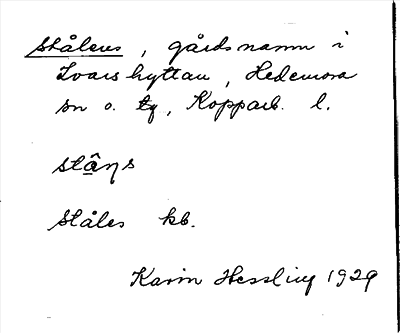 Ståleus, gårdsnamn i
Ivarshyttan, Hedemora
sn o. tg, Kopparb. l.
Ståles kb.
Karin Hessling 1929